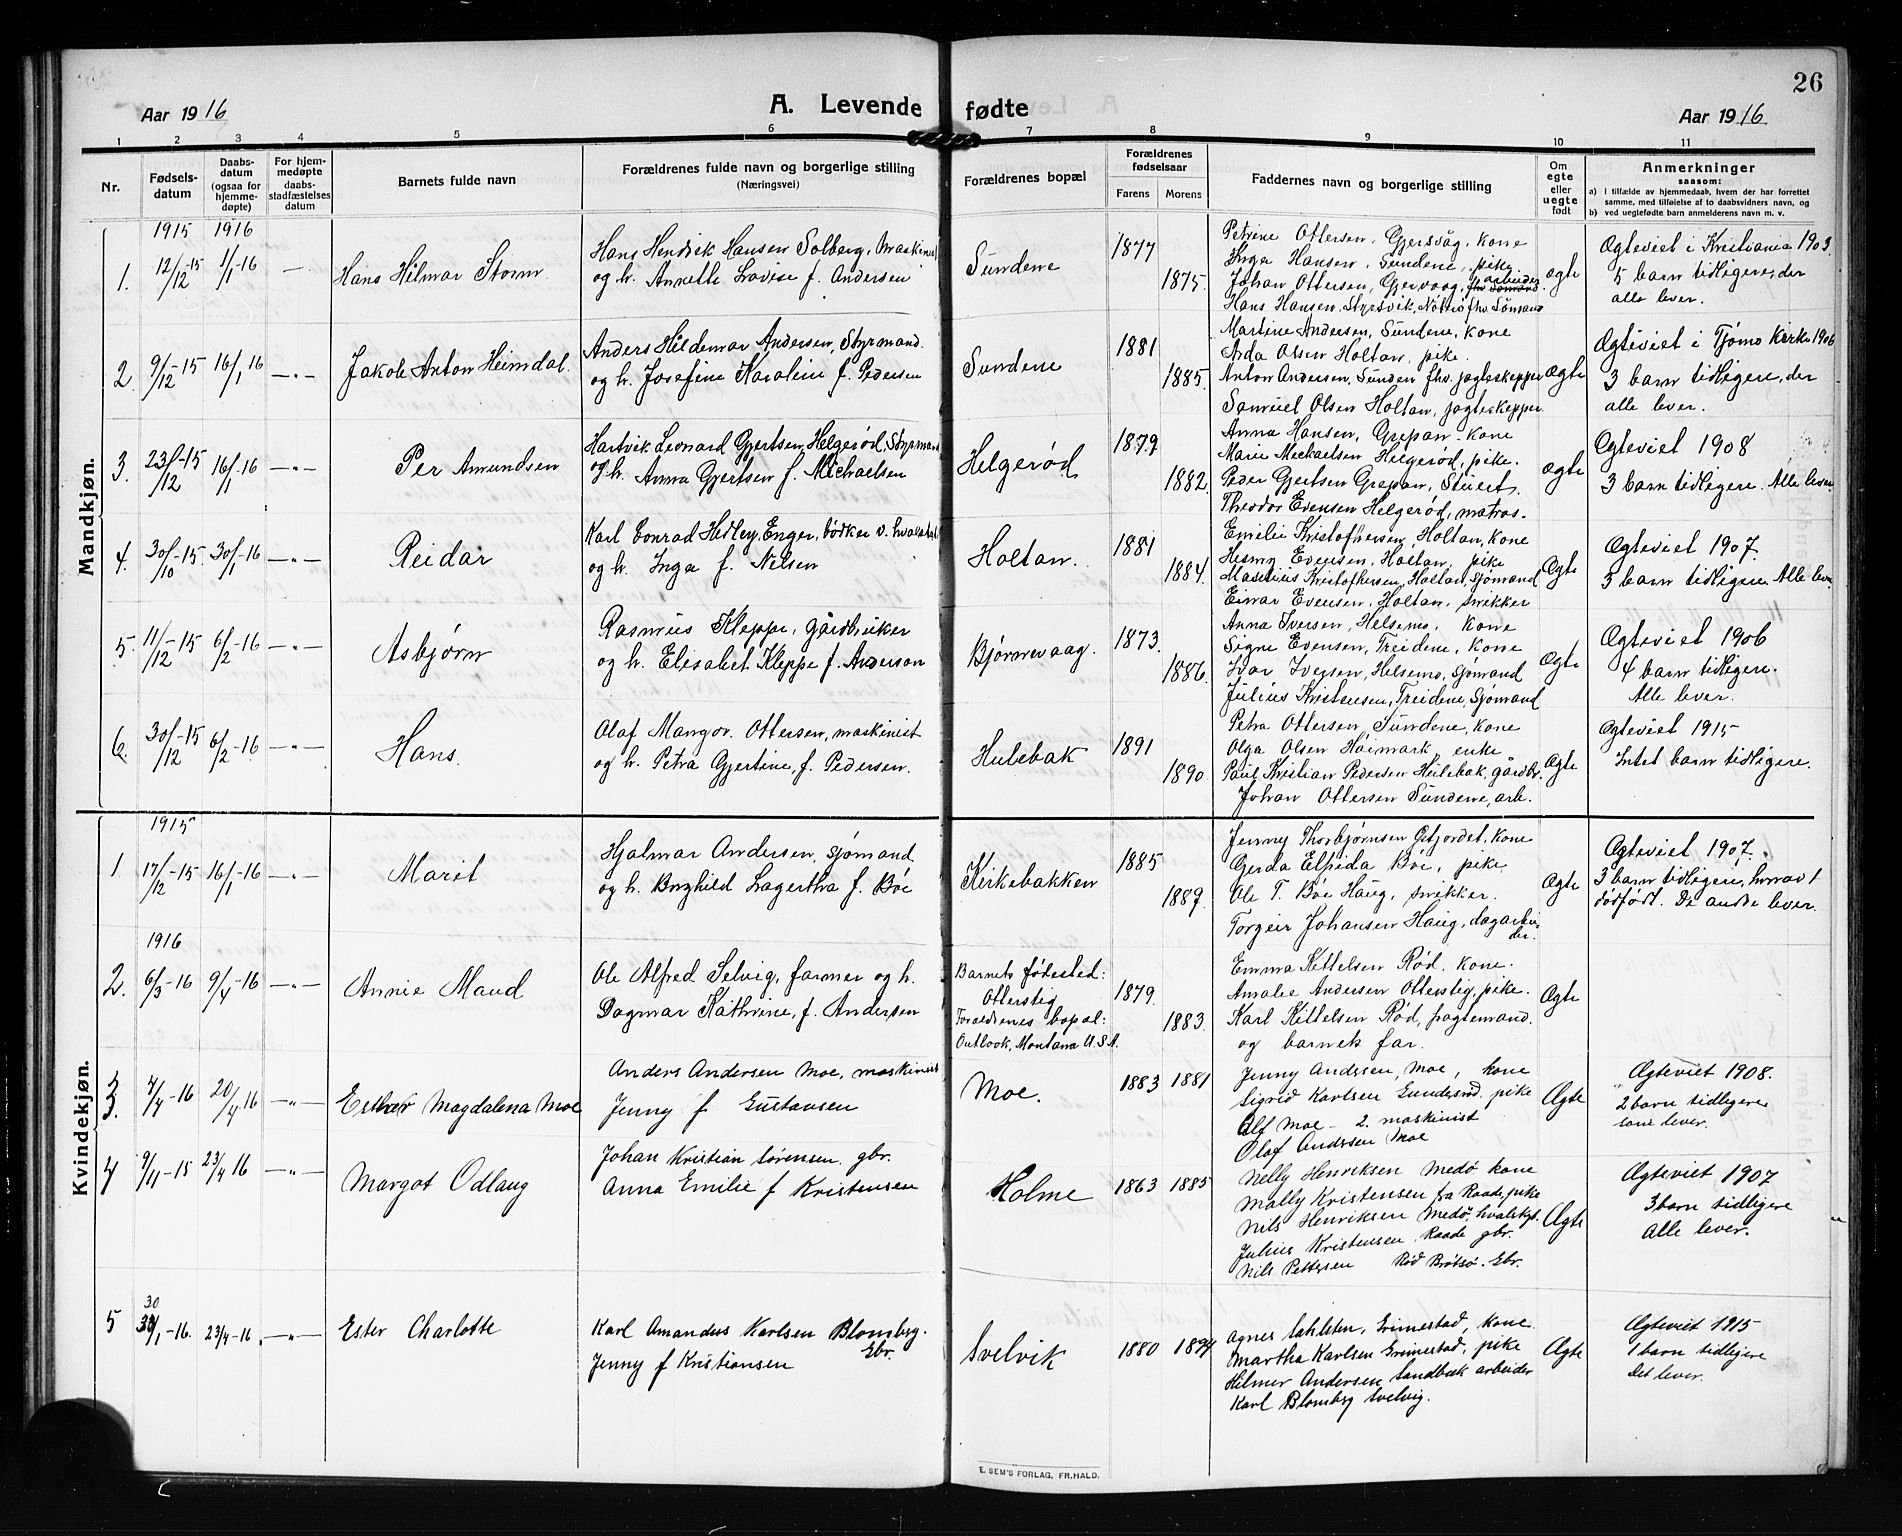 26
Aar 1916
A. Levende fødte
Aar 1916
1 2 3 4 5 6 7 8 9 10 11
Nr.
Fødselsdatum
Daabsdatum (ogsaa for hjemmedøpte)
For hjemmedøpte daabsstadfæstelses datum
Barnets fulde navn
Forældrenes fulde navn og borgerlige stilling (Næringsvei)
Forældrenes bopæl
Forældrenes fødselsaar
Farens Morens
Faddernes navn og borgerlige stilling
Om egte eller uegte født
Anmerkninger
saasom:
a) I tilfælde av hjemmedaab, hvem der har forrettet samme, med tilføielse af to daabsvidners navn, og
b) ved uegtefødte barn anmelderens navn m. v.
Mandkjøn.
1915 1916
1. 12/12-15 1/1-16 —
Hans Hilmar Storm
Hans Hendrik Hansen Solberg, Maskinist
og h. Annette Lovise f. Andersen
Sundene
1877
1875.
Petrine Ottersen, Gjersvåg, kone
Inga Hansen, Sundene, pike
Johan Ottersen, Gjervaag, arbeider
Hans Hansen, Styrsvik, Nøtterø fhv. Sømand
ægte
Ægteviet i Kristiania 1903.
5 barn tidligere, der
alle lever.
2. 9/12-15 16/1 16 —"—
Jakob Anton Heimdal.
Anders Hildemar Andersen, Styrmand.
og h. Josefine Karoline f. Pedersen
Sundene
1881
1885.
Martine Andersen, Sundene, kone
Arda Olsen Holtan, pike.
Anton Andersen, Sunden fhv. jagteskepper
Samuel Olsen Holtan, jagteskepper.
Ægte
Ægteviet i Tjømø Kirke 1906
3 barn tidligere, der
alle lever.
3. 23/12-15 16/1-16 —"—
Per Amundsen
Hartvik Leonard Gjertsen, Helgerød, Styrmand
og h. Anna Gjertsen f. Michaelsen
Helgerød
1879.
1882.
Anna Hansen, Grepan - kone
Marie Mickaelsen Helgerød, pike.
Peder Gjertsen Grepan, Stuert.
Theodor Evensen Helgerød, matros.
ægte
Ægteviet 1908
3 barn tidligere. Alle lever.
4. 30/10-15 30/1-16 —"—
Reidar
Karl Conrad Hedley Enger, bødker v. hvalfangst
og h. Inga f. Nilsen
Holtan.
1881
1884.
Emilie Kristofhersen, Holtan, kone
Evensen, Holtan, pike
Kristofhersen, Holtan, sjømand
Einar Evensen, Holtan, snikker
Ægte
Ægteviet 1907.
3 barn tidligere. Alle lever
5. 11/12-15 6/2-16 —"—
Asbjørn
Rasmus Kleppe, gårdbruker
og h. Elisabet Kleppe f. Anderson
Bjørnevaag.
1873.
1886.
Anna Iversen, Helsemo. kone
Signe Evensen, Treidene, kone
Ivar Iversen, Helsemo, sjømand
Julius Kristensen, Treidene, Sjømand
Ægte
Ægteviet 1906
4 barn tidligere.
Alle lever.
6. 30/12-15 6/2-16 —"—
Hans.
Olaf Mangor. Ottersen, maskinist
og h. Petra Gjertine, f. Pedersen.
Hulebak
1891
1890.
Petra Ottersen, Sundene, kone
Olga Olsen Høimark, enke
Paul Kristian Pedersen Hulebak, gårdbr.
Johan Ottersen Sundene, arb.
Ægte
Ægteviet 1915
Intet barn tidligere.
Kvindekjøn.
1915
1 17/12-15 16/1-16
Marit
Hjalmar Andersen, sjømand
og h. Borghild Lagertha f. Bøe
Kirkebakken
1885
1887.
Jenny Thorbjørnsen Gifjordet, kone
Gerda Elfrida Bøe, pike
Ole T. Bøe Haug, snikker.
Torgeir Johansen Haug, dagarbeider.
Ægte
Ægteviet 1907.
3 barn tidligere, hvorav 1
dødfødt. De andre lever.
1916
2. 6/3-16 9/4-16 —"—
Annie Maud
Ole Alfred Selvig, farmer og h.
Dagmar Kathrine, f. Andersen
Barnets fødested:
Otterstig
Forældrenes bopæl:
Outlook, Montana U.S.A.
1879.
1883.
Emma Kittelsen Rød. kone.
Amalie Andersen Otterstig, pike.
Karl Kittelsen Rød, jagtemand.
og barnets far.
Ægte
3. 4/4-16 20/4 16 —"—
Esther Magdalena Moe
Anders Andersen Moe, maskinist
Jenny f Gustavsen
Moe.
1883 1881
Jenny Andersen, Moe, kone
Sigrid Karlsen Gundersrød pike
Alf Moe - 2. maskinist
Olaf Andersen Moe
Ægte
Ægteviet 1908.
2 barn tidligere
som lever.
4 9/11-15 23/4 16 —"—
Margot Odlaug
Johan Kristian Sørensen. gbr.
Anna Emilie f Kristensen
Holme
1863 1885
Nelly Henriksen Medø kone
Mally Kristensen fra Raade, pike
Nils Henriksen Medø, hvalskyt.
Julius Kristensen, Raade gbr.
Nils Pettersen Rød Brøtsø. Gbr.
Ægte
Ægteviet 1907
3 barn tidligere
Alle lever.
5 30/1-16. 23/4-16. —"—
Ester Charlotte
Karl Amandus Karlsen Blomberg.
Gbr.
Jenny f Kristiansen
Svelvik
1880 1894
Agnes Dahlsten, Grimestad, kone
Martha Karlsen Grimestad, pike
Hilmer Andersen Sandbæk arbeider
Karl Blomberg Svelvig.
Ægte
Ægteviet 1915
1 barn tidligere
Det lever.
E. SEM'S FORLAG, FR.HALD.